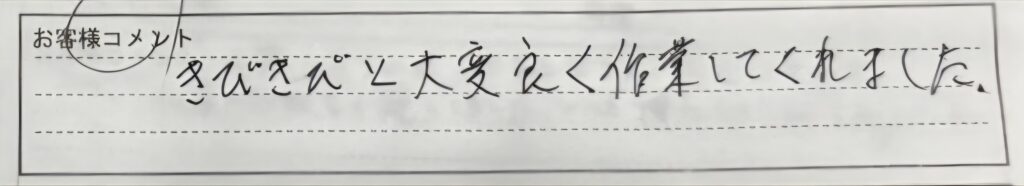 お客様コメント
きびきびと大変良く作業してくれました.